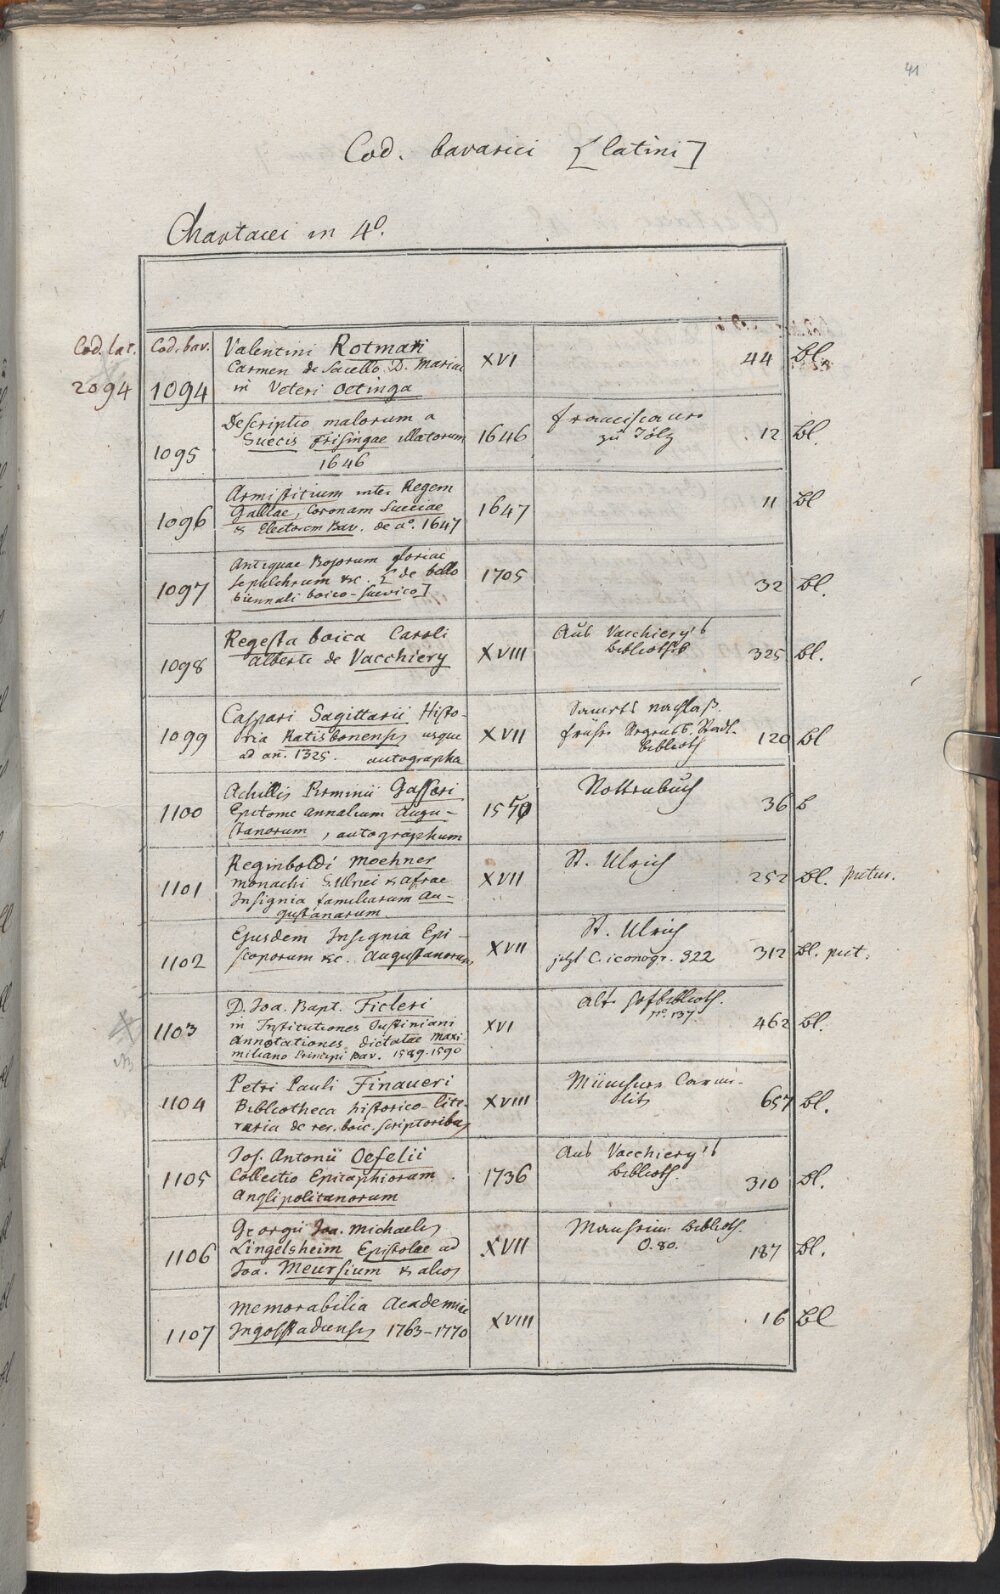 41
Cod. bavarici [latini]
Chartacei in 4º.
Cod. lat. Cod. bav. Valentini Rotmari XVI 44 Bl.
Carmen de Sacello D. Mariae
2094 1094 in Veteri Oetinga
Descriptio malorum a 1646 Franciscaner 12 Bl.
Suecis Frisingae illatorum zu Tölz
1095 1646
Armistitium inter Regem 1647 11 Bl
1096 Galliae, Coronam Sueciae
& Electorem Bav. de aº. 1647
Antiquae Bojorum gloriae 1705 32 Bl.
1097 sepulchrum &c. [de bello
biennali boico-suevico]
Regesta boica Caroli XVIII Aus Vacchiery's 325 Bl.
1098 Alberti de Vacchiery Biblioth.
Caspari Sagittarii Histo- XVII nachlaß. 120 Bl
1099 ria Ratisbonensis usque früher Regensb. Stadt-
ad an. 1325. autographa Biblioth
Achillis Pirminii Gassari 1550 Rottenbuch 36 b
1100 Epitome annalium Augu-
stanorum, autographum
Reginboldi Moehner XVII St. Ulrich 252 Bl. pictur.
1101 monachi S. Ulrici & Afrae
Insignia familiarum Au-
gustanarum
Ejusdem Insignia Epi- XVII St. Ulrich 312 Bl. pict.
1102 scoporum &c. Augustanorum jetzt C. iconogr. 322
D. Joa. Bapt. Ficleri XVI Alte Hofbiblioth. 462 Bl.
1103 in Institutiones Justiniani nº. 137.
annotationes dictatae Maxi-
miliano Principi Bav. 1589-1590
Petri Pauli Finaueri XVIII Münchner Carme- 657 Bl.
1104 Bibliotheca historico-lite- liten
raria de rer. boic. scriptoribus
Jos. Antonii Oefelii 1736 Aus Vacchiery's 310 Bl.
1105 Collectio Epitaphiorum Biblioth.
Anglipolitanorum
Georgii Joa. Michaelis XVII Manheim. Biblioth. 187 Bl.
1106 Lingelsheim Epistolae ad O. 80.
Joa. Meursium & alios
Memorabilia Academiae XVIII 16 Bl
1107 Ingolstadiensis 1763-1770